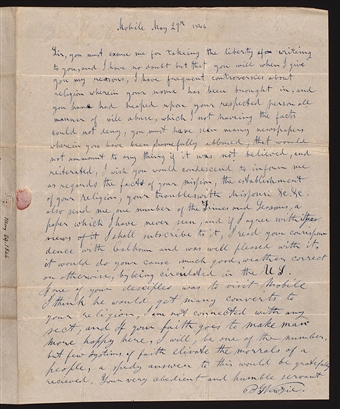 Mobile May 29th 1844
Sir, you must excuse me for takeing the liberty of writeing
to you, and I have no doubt but that you will when I give
you my reasons, I have frequent controversies about
religion wherein your name has been brought in, and
you have had heaped upon your respected person all
manner of vile abuse, which I not haveing the facts
could not deny, you must have seen many newspapers
wherein you have been shamefully abused, that would
not ammount to any thing if it was not believed, and
reiterated, I wish you would condescend to inform me
as regards the facts of your mission, the establishment
of your religion, your troubles with Missouri &c &c.
also send me one number of the Times and Seasons, a
paper which I have never seen, and if I agree with the
views of it I shall subscribe to it, I read your corrispon
dence with Calhoun and was well pleased with it,
it would do your cause much good, weather correct
or otherwise, by being circulated in the U S.
If one of your desciples was to visit Mobile
I think he would get many converts to
your religion, I am not connected with any
sect, and if your faith goes to make man
more happy here, I will be one of the number,
but few systems of faith elivate the morrals of a
people, a spedy answer to this would be gratefully
recieved. Your very obedient and humble servant
May 29 1844